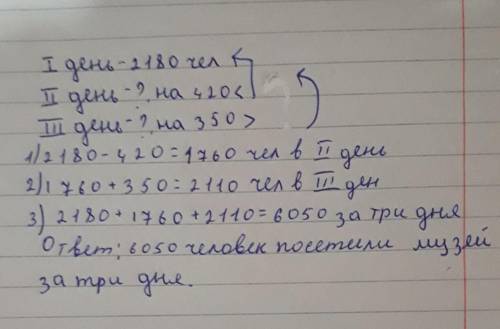 I день - 2180 чел
II день - ? на 420 <
III день - ? на 350 >
1) 2180 - 420 = 1760 чел в II день
2) 1760 + 350 = 2110 чел в III ден
3) 2180 + 1760 + 2110 = 6050 за три дня
Ответ: 6050 человек посетили музей
за три дня.